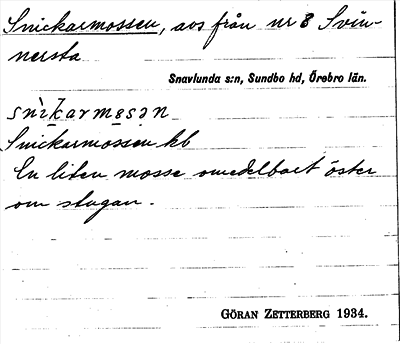 Snickarmossen, avs från nr 8 Svin-
nersta
Snavlunda s:n, Sundbo hd, Örebro län.
Snickarmossen hb
En liten mosse omedelbart öster
om stugan.
GÖRAN ZETTERBERG 1934.